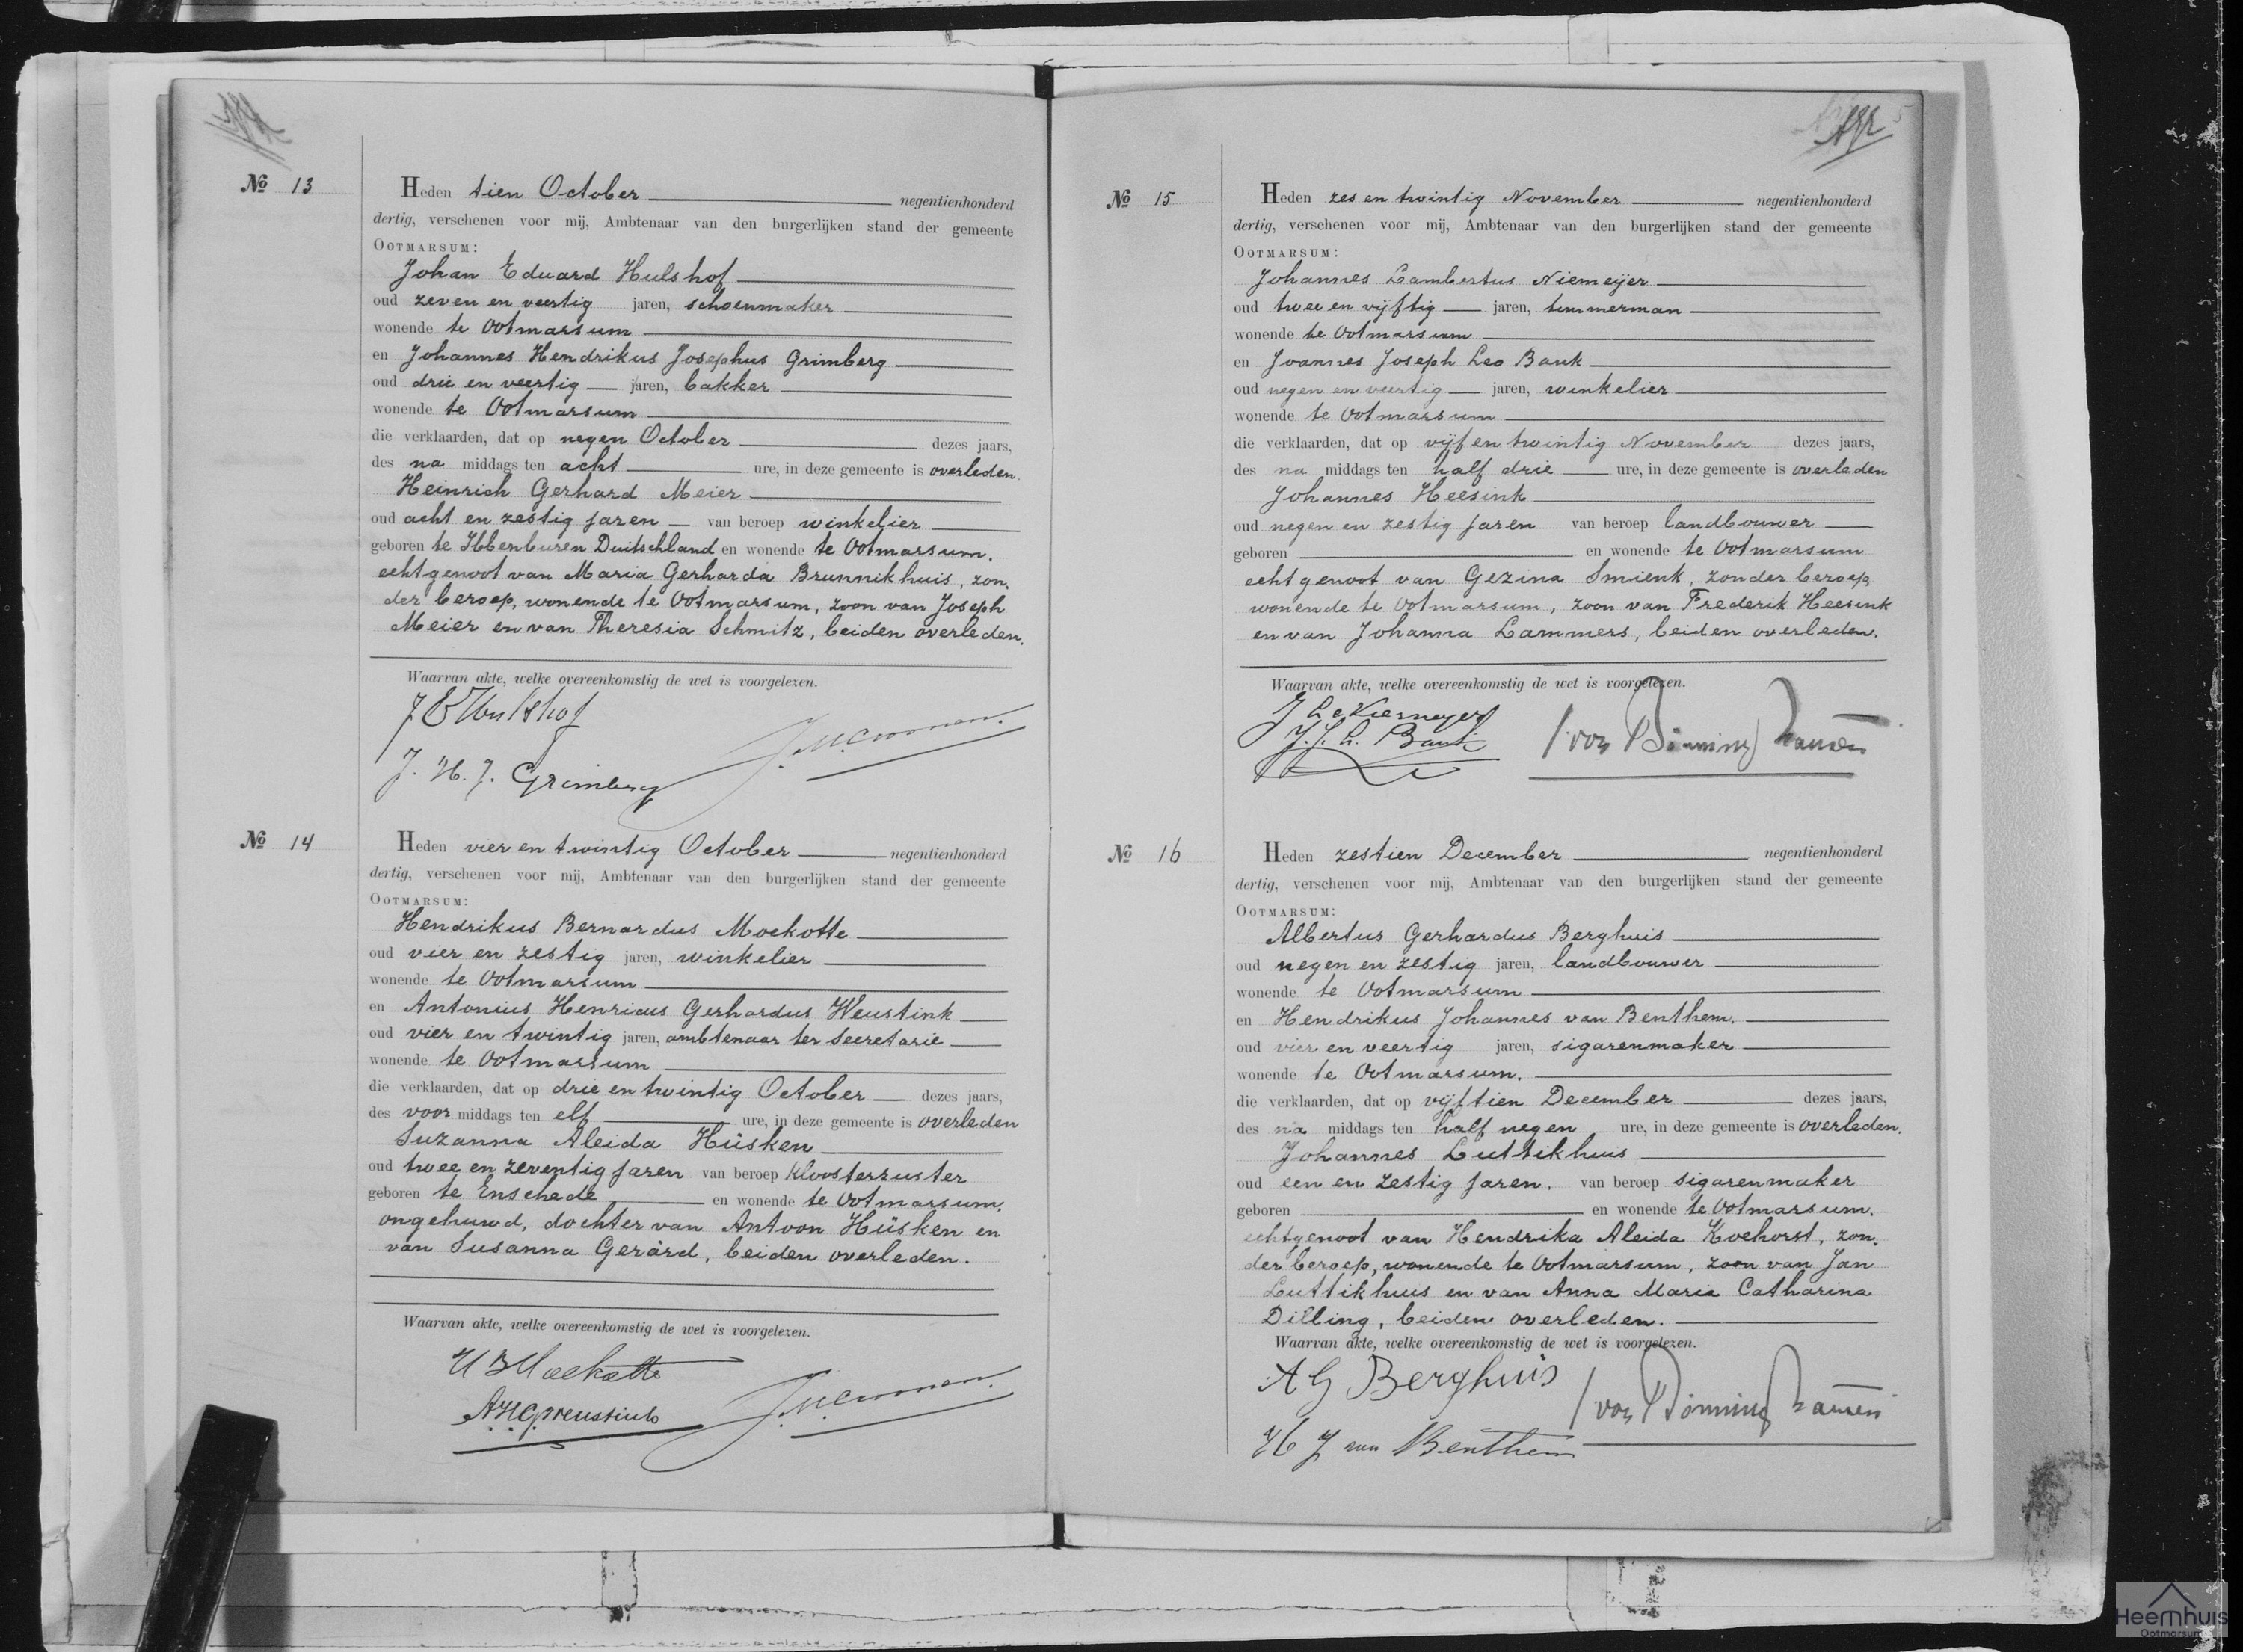 No 13
Heden tien October negentienhonderd
dertig, verschenen voor mij, Ambtenaar van den burgerlijken stand der gemeente
OOTMARSUM:
Johan Eduard Hulshof
oud zeven en veertig jaren, schoenmaker
wonende te Ootmarsum
en Johannes Hendrikus Josephus Grimberg
oud drie en veertig jaren, bakker
wonende te Ootmarsum
die verklaarden, dat op negen October dezes jaars,
des na middags ten acht ure, in deze gemeente is overleden.
Heinrich Gerhard Meier
oud acht en zestig jaren van beroep winkelier
geboren te Ibbenburen Duitschland en wonende te Ootmarsum.
echtgenoot van Maria Gerharda Brunnikhuis, zon-
der beroep, wonende te Ootmarsum, zoon van Joseph
Meier en van Theresia Schmitz, beiden overleden.
Waarvan akte, welke overeenkomstig de wet is voorgelezen.
J E Hulshof
J. H. J. Grimberg
No 14
Heden vier en twintig October negentienhonderd
dertig, verschenen voor mij, Ambtenaar van den burgerlijken stand der gemeente
OOTMARSUM:
Hendrikus Bernardus Moekotte
oud vier en zestig jaren, winkelier
wonende te Ootmarsum
en Antonius Henricus Gerhardus Weustink
oud vier en twintig jaren, ambtenaar ter secretarie
wonende te Ootmarsum
die verklaarden, dat op drie en twintig October dezes jaars,
des voor middags ten elf ure, in deze gemeente is overleden
Suzanna Aleida Hüsken
oud twee en zeventig jaren van beroep kloosterzuster
geboren te Enschede en wonende te Ootmarsum,
ongehuwd, dochter van Antoon Hüsken en
van Susanna Gerárd, beiden overleden.
Waarvan akte, welke overeenkomstig de wet is voorgelezen.
H B Moekotte
A.H.G. Weustink
No 15
Heden zes en twintig November negentienhonderd
dertig, verschenen voor mij, Ambtenaar van den burgerlijken stand der gemeente
OOTMARSUM:
Johannes Lambertus Niemeijer
oud twee en vijftig jaren, timmerman
wonende te Ootmarsum
en Joannes Joseph Leo Bank
oud negen en veertig jaren, winkelier
wonende te Ootmarsum
die verklaarden, dat op vijf en twintig November dezes jaars,
des na middags ten half drie ure, in deze gemeente is overleden
Johannes Heesink
oud negen en zestig jaren van beroep landbouwer
geboren en wonende te Ootmarsum
echtgenoot van Gezina Smienk, zonder beroep,
wonende te Ootmarsum, zoon van Frederik Heesink
en van Johanna Lammers, beiden overleden.
Waarvan akte, welke overeenkomstig de wet is voorgelezen.
J L Niemeyer
J. J. L. Bank
von Bönninghausen
No 16
Heden zestien December negentienhonderd
dertig, verschenen voor mij, Ambtenaar van den burgerlijken stand der gemeente
OOTMARSUM:
Albertus Gerhardus Berghuis
oud negen en zestig jaren, landbouwer
wonende te Ootmarsum
en Hendrikus Johannes van Benthem.
oud vier en veertig jaren, sigarenmaker
wonende te Ootmarsum.
die verklaarden, dat op vijftien December dezes jaars,
des na middags ten half negen ure, in deze gemeente is overleden.
Johannes Luttikhuis
oud een en zestig jaren. van beroep sigarenmaker
geboren en wonende te Ootmarsum.
echtgenoot van Hendrika Aleida Koehorst, zon-
der beroep, wonende te Ootmarsum, zoon van Jan
Luttikhuis en van Anna Maria Catharina
Dilling, beiden overleden.
Waarvan akte, welke overeenkomstig de wet is voorgelezen.
A G Berghuis
H J van Benthem
von Bönninghausen
Heemhuis
Ootmarsum